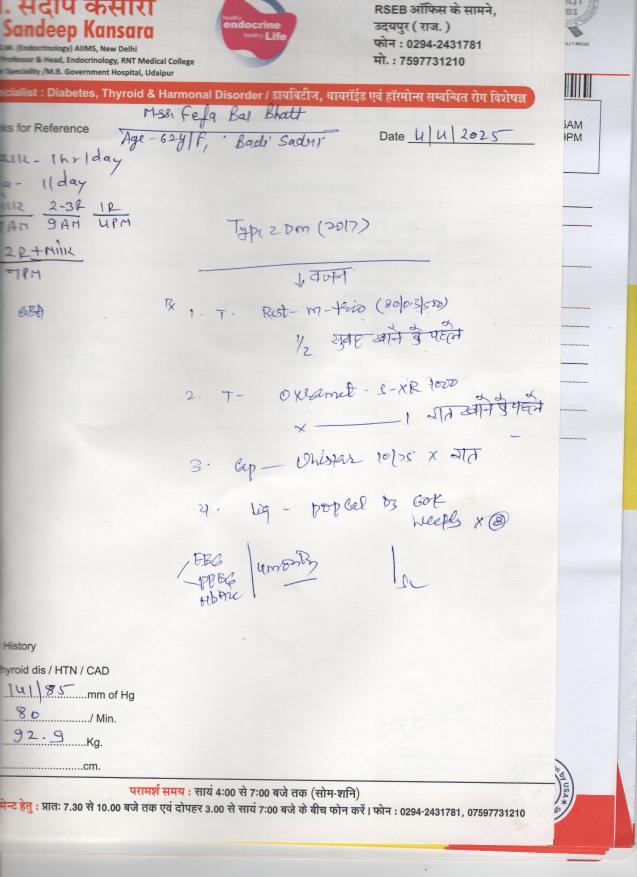 . संदीप कंसारा
Sandeep Kansara
.M. (Endocrinology) AIIMS, New Delhi
Professor & Head, Endocrinology, RNT Medical College
r Speciality /M.B. Government Hospital, Udaipur
healthy
endocrine
healthy Life
RSEB ऑफिस के सामने,
उदयपुर (राज.)
फोन : 0294-2431781
मो. : 7597731210
ecialist : Diabetes, Thyroid & Harmonal Disorder / डायबिटीज, थायरॉईड एवं हॉरमोन्स सम्बन्धित रोग विशेषज्ञ
Bal Bhatt
ks for Reference
Age - 62y/F, Badi Sadri
Date 4/4/2025
- 1hr/day
- 1/day
2-3R 1R
AM 9AM 4PM
2R + Milk
7PM
Type 2 Dm (2017)
↓ वजन
Rx 1. T-
1/2 सुबह खाने से पहले
2. T- - S-XR 1000
x 1 रात खाने से पहले
3. Cap - 10/75 x रात
4. Liq - D3 60K
weekly x 8
FBG
PPBG
HbA1c
History
hyroid dis / HTN / CAD
141/85 mm of Hg
80 / Min.
92.9 Kg.
cm.
परामर्श समय : सायं 4:00 से 7:00 बजे तक (सोम-शनि)
मेन्ट हेतु : प्रातः 7.30 से 10.00 बजे तक एवं दोपहर 3.00 से सायं 7:00 बजे के बीच फोन करें। फोन : 0294-2431781, 07597731210